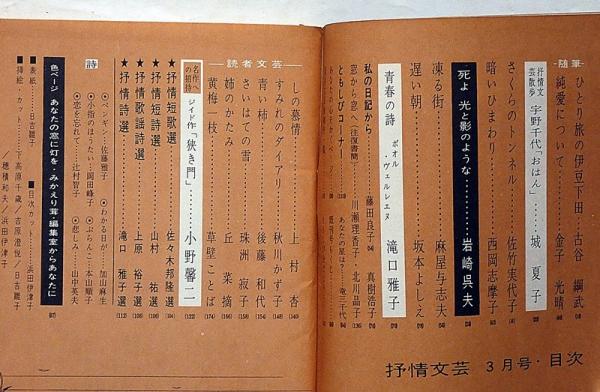 抒情文芸 3月号・目次
随筆
ひとり旅の伊豆下田……古谷綱武
純愛について……金子光晴
抒情文芸散歩 宇野千代「おはん」……城夏子
さくらのトンネル……佐竹実代子
暗いひまわり……西岡志摩子
死よ 光と影のような……岩崎呉夫
凍る街……麻屋与志夫
遅い朝……坂本よしえ
青春の詩 ポオル・ヴェルレエヌ 滝口雅子
私の日記から 藤田良子 真樹浩子
窓から窓へ(往復書簡) 川瀬理香子・北川晶子
ともしびコーナー あなたの星は?…竜三千代
読者文芸
しの慕情……上村杏
すみれのダイアリー……秋川かず子
青い柿……後藤和代
さいはての雪……珠洲寂子
姉のかたみ……丘菜摘
黄梅一枝……草壁ことば
名作への招待 ジイド作「狭き門」……小野馨二
★抒情短歌選……佐々木邦隆選
★抒情短詩選……山村祐選
★抒情歌謡詩選……上原裕子選
★抒情詩選……滝口雅子選
詩
○ペンギン…佐藤雅子 ○わかる日が…加山麻生
○小指のほうたい…岡田峰子 ○ぶらんこ…本山順子
○恋を忘れて…辻村智子 ○悲しみ…山中英夫
色ページ あなたの窓に灯を・みかえり草・編集室からあなたに
■表紙……日吉離子 ■目次カット……浜田伊津子
■挿絵・カット……下高原千歳/吉原澄悦/日吉離子
穂積和夫/浜田伊津子